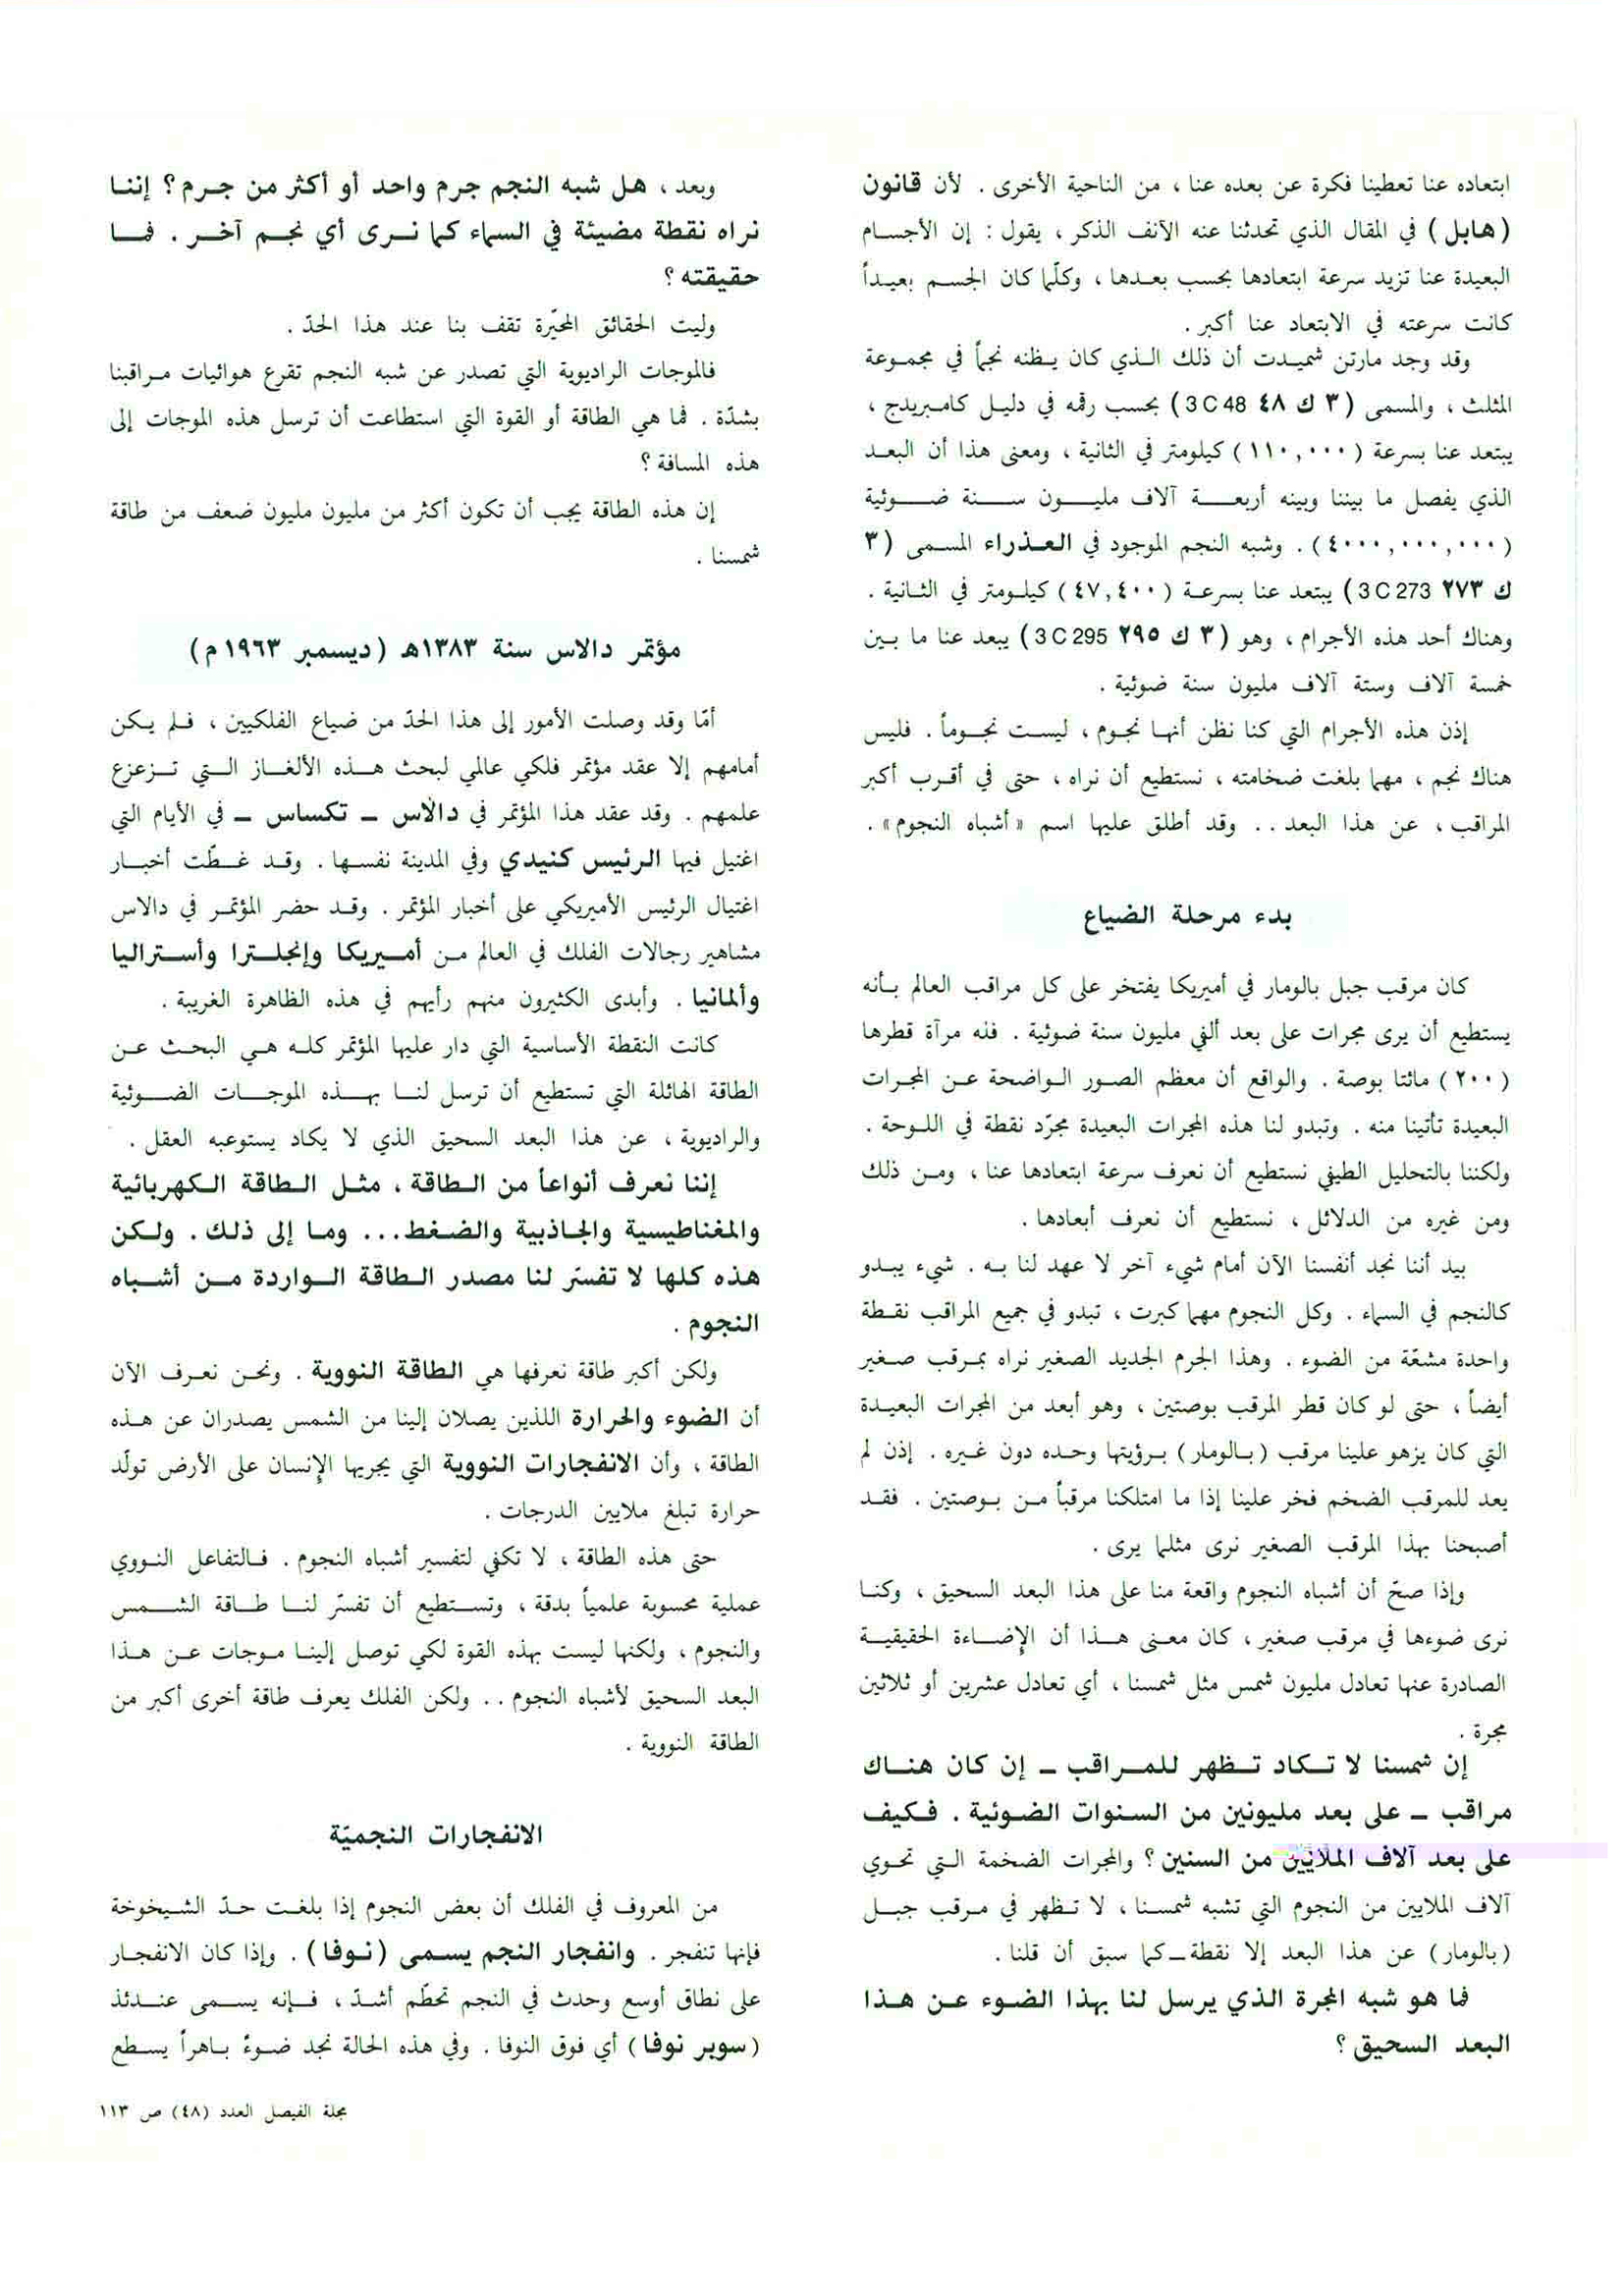 ابتعاده عنا تعطينا فكرة عن بعده عنا ، من الناحية الأخرى . لأن قانون
(هابل) في المقال الذي تحدثنا عنه الآنف الذكر ، يقول : إن الأجسام
البعيدة عنا تزيد سرعة ابتعادها بحسب بعدها ، وكلّما كان الجسم بعيداً
كانت سرعته في الابتعاد عنا أكبر .
وقد وجد مارتن شميدت أن ذلك الذي كان يظنه نجماً في مجموعة
المثلث ، والمسمى (٣ ك ٤٨ 3C48) بحسب رقمه في دليل كامبريدج ،
يبتعد عنا بسرعة (١١٠,٠٠٠) كيلومتر في الثانية ، ومعنى هذا أن البعد
الذي يفصل ما بيننا وبينه أربعة آلاف مليون سنة ضوئية
(٤٠٠٠,٠٠٠,٠٠٠) . وشبه النجم الموجود في العذراء المسمى (٣
ك ٢٧٣ 3C273) يبتعد عنا بسرعة (٤٧,٤٠٠) كيلومتر في الثانية .
وهناك أحد هذه الأجرام ، وهو (٣ ك ٢٩٥ 3C295) يبعد عنا ما بين
خمسة آلاف وستة آلاف مليون سنة ضوئية .
إذن هذه الأجرام التي كنا نظن أنها نجوم ، ليست نجوماً . فليس
هناك نجم ، مهما بلغت ضخامته ، نستطيع أن نراه ، حتى في أقرب أكبر
المراقب ، عن هذا البعد .. وقد أطلق عليها اسم «أشباه النجوم» .
بدء مرحلة الضياع
كان مرقب جبل بالومار في أميريكا يفتخر على كل مراقب العالم بأنه
يستطيع أن يرى مجرات على بعد ألفي مليون سنة ضوئية . فله مرآة قطرها
(٢٠٠) مائتا بوصة . والواقع أن معظم الصور الواضحة عن المجرات
البعيدة تأتينا منه . وتبدو لنا هذه المجرات البعيدة مجرّد نقطة في اللوحة .
ولكننا بالتحليل الطيفي نستطيع أن نعرف سرعة ابتعادها عنا ، ومن ذلك
ومن غيره من الدلائل ، نستطيع أن نعرف أبعادها .
بيد أننا نجد أنفسنا الآن أمام شيء آخر لا عهد لنا به . شيء يبدو
كالنجم في السماء . وكل النجوم مهما كبرت ، تبدو في جميع المراقب نقطة
واحدة مشعّة من الضوء . وهذا الجرم الجديد الصغير نراه بمرقب صغير
أيضاً ، حتى لو كان قطر المرقب بوصتين ، وهو أبعد من المجرات البعيدة
التي كان يزهو علينا مرقب (بالومار) برؤيتها وحده دون غيره . إذن لم
يعد للمرقب الضخم فخر علينا إذا ما امتلكنا مرقباً من بوصتين . فقد
أصبحنا بهذا المرقب الصغير نرى مثلما يرى .
وإذا صحّ أن أشباه النجوم واقعة منا على هذا البعد السحيق ، وكنا
نرى ضوءها في مرقب صغير ، كان معنى هذا أن الإضاءة الحقيقية
الصادرة عنها تعادل مليون شمس مثل شمسنا ، أي تعادل عشرين أو ثلاثين
مجرة .
إن شمسنا لا تكاد تظهر للمراقب – إن كان هناك
مراقب – على بعد مليونين من السنوات الضوئية . فكيف
على بعد آلاف الملايين من السنين ؟ والمجرات الضخمة التي تحوي
آلاف الملايين من النجوم التي تشبه شمسنا ، لا تظهر في مرقب جبل
(بالومار) عن هذا البعد إلا نقطة – كما سبق أن قلنا .
فما هو شبه المجرة الذي يرسل لنا بهذا الضوء عن هذا
البعد السحيق ؟
وبعد ، هل شبه النجم جرم واحد أو أكثر من جرم ؟ إننا
نراه نقطة مضيئة في السماء كما نرى أي نجم آخر . فما
حقيقته ؟
وليت الحقائق المحيّرة تقف بنا عند هذا الحدّ .
فالموجات الراديوية التي تصدر عن شبه النجم تقرع هوائيات مراقبنا
بشدّة . فما هي الطاقة أو القوة التي استطاعت أن ترسل هذه الموجات إلى
هذه المسافة ؟
إن هذه الطاقة يجب أن تكون أكثر من مليون مليون ضعف من طاقة
شمسنا .
مؤتمر دالاس سنة ١٣٨٣هـ (ديسمبر ١٩٦٣ م)
أمّا وقد وصلت الأمور إلى هذا الحدّ من ضياع الفلكيين ، فلم يكن
أمامهم إلا عقد مؤتمر فلكي عالمي لبحث هذه الألغاز التي تزعزع
علمهم . وقد عقد هذا المؤتمر في دالاس – تكساس – في الأيام التي
اغتيل فيها الرئيس كنيدي وفي المدينة نفسها . وقد غطّت أخبار
اغتيال الرئيس الأميريكي على أخبار المؤتمر . وقد حضر المؤتمر في دالاس
مشاهير رجالات الفلك في العالم من أميريكا وإنجلترا وأستراليا
وألمانيا . وأبدى الكثيرون منهم رأيهم في هذه الظاهرة الغريبة .
كانت النقطة الأساسية التي دار عليها المؤتمر كله هي البحث عن
الطاقة الهائلة التي تستطيع أن ترسل لنا بهذه الموجات الضوئية
والراديوية ، عن هذا البعد السحيق الذي لا يكاد يستوعبه العقل .
إننا نعرف أنواعاً من الطاقة ، مثل الطاقة الكهربائية
والمغناطيسية والجاذبية والضغط... وما إلى ذلك . ولكن
هذه كلها لا تفسّر لنا مصدر الطاقة الواردة من أشباه
النجوم .
ولكن أكبر طاقة نعرفها هي الطاقة النووية . ونحن نعرف الآن
أن الضوء والحرارة اللذين يصلان إلينا من الشمس يصدران عن هذه
الطاقة ، وأن الانفجارات النووية التي يجريها الإنسان على الأرض تولّد
حرارة تبلغ ملايين الدرجات .
حتى هذه الطاقة ، لا تكفي لتفسير أشباه النجوم . فالتفاعل النووي
عملية محسوبة علمياً بدقة ، وتستطيع أن تفسّر لنا طاقة الشمس
والنجوم ، ولكنها ليست بهذه القوة لكي توصل إلينا موجات عن هذا
البعد السحيق لأشباه النجوم .. ولكن الفلك يعرف طاقة أخرى أكبر من
الطاقة النووية .
الانفجارات النجميّة
من المعروف في الفلك أن بعض النجوم إذا بلغت حدّ الشيخوخة
فإنها تنفجر . وانفجار النجم يسمى (نوفا) . وإذا كان الانفجار
على نطاق أوسع وحدث في النجم تحطّم أشدّ ، فإنه يسمى عندئذ
(سوبر نوفا) أي فوق النوفا . وفي هذه الحالة نجد ضوءً باهراً يسطع
مجلة الفيصل العدد (٤٨) ص ١١٣